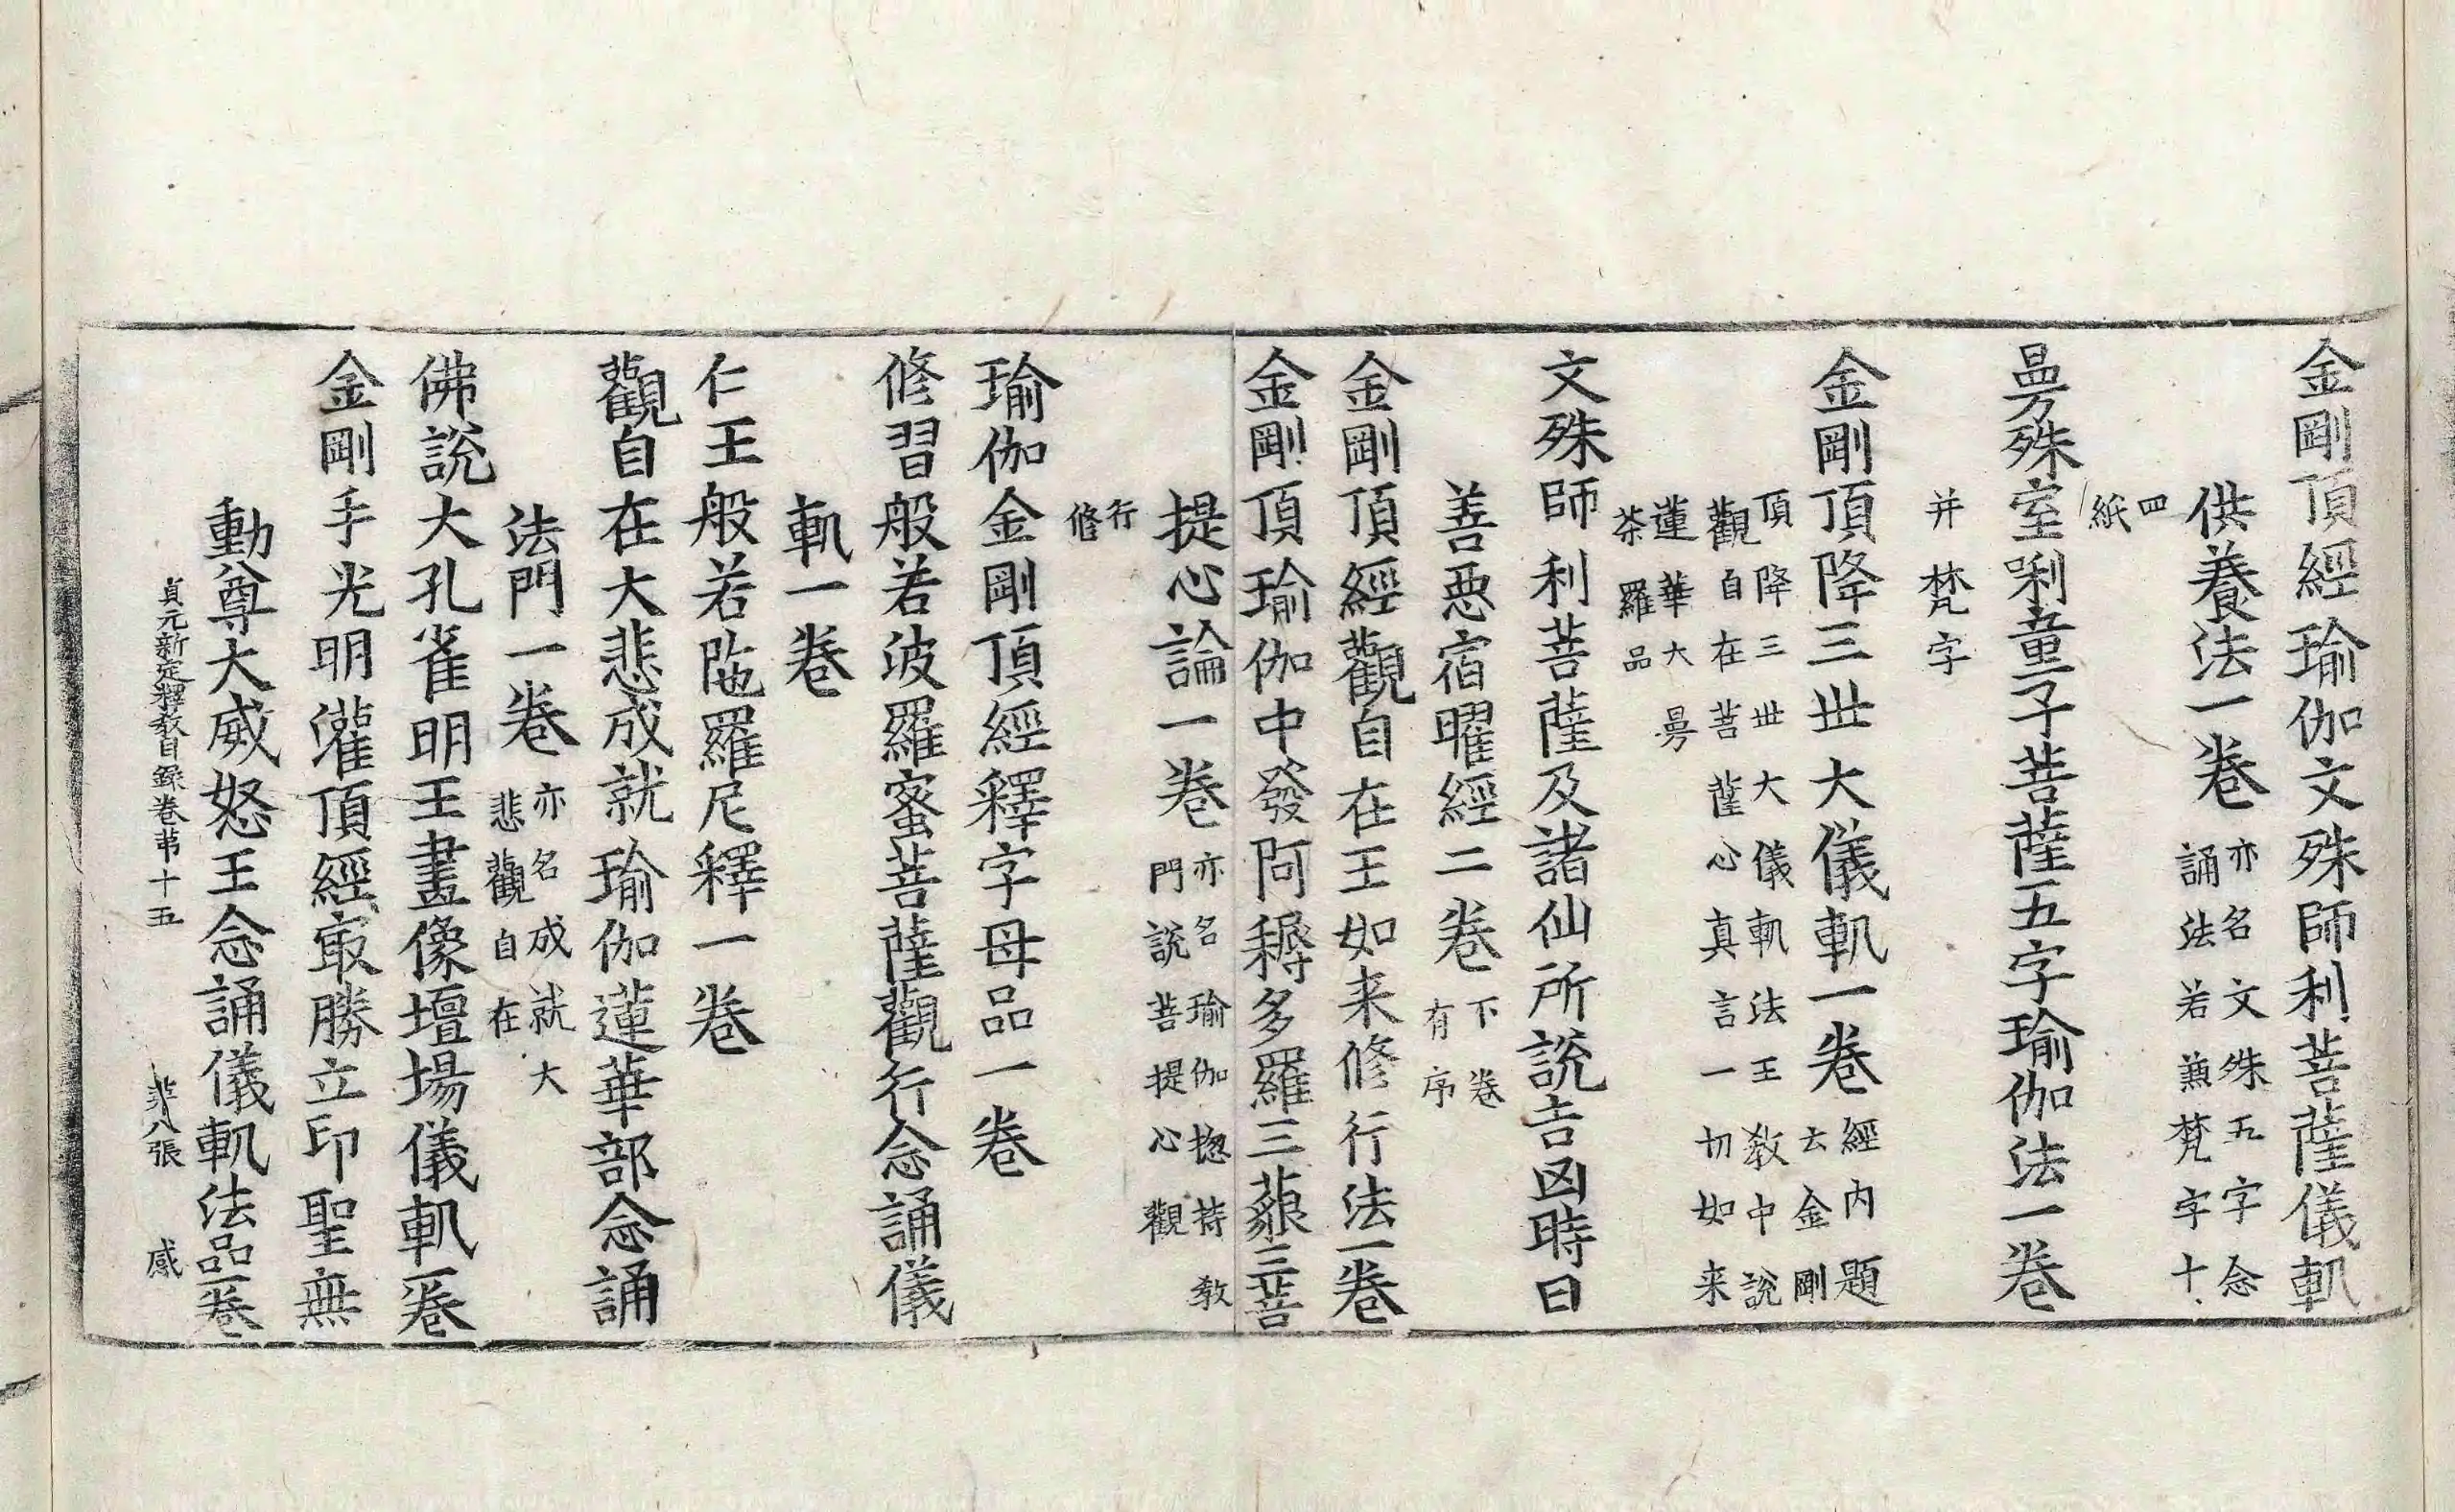 金剛頂經瑜伽文殊師利菩薩儀軌
供養法一卷
亦名文殊五字念
誦法若兼梵字十
四
紙
曼殊室唎童子菩薩五字瑜伽法一卷
并梵字
金剛頂降三世大儀軌一卷
經內題
云金剛
頂降三世大儀軌法王教中說
觀自在菩薩心真言一切如来
蓮華大曼
荼羅品
文殊師利菩薩及諸仙所說吉凶時日
善惡宿曜經二卷
下卷
有序
金剛頂經觀自在王如来修行法一卷
金剛頂瑜伽中發阿耨多羅三藐三菩
提心論一卷
亦名瑜伽惣持教
門說菩提心觀
行
修
瑜伽金剛頂經釋字母品一卷
修習般若波羅蜜菩薩觀行念誦儀
軌一卷
仁王般若陁羅尼釋一卷
觀自在大悲成就瑜伽蓮華部念誦
法門一卷
亦名成就大
悲觀自在
佛說大孔雀明王畫像壇場儀軌一卷
金剛手光明灌頂經冣勝立印聖無
動尊大威怒王念誦儀軌法品一卷
貞元新定釋教目錄卷苐十五 苐八張 感